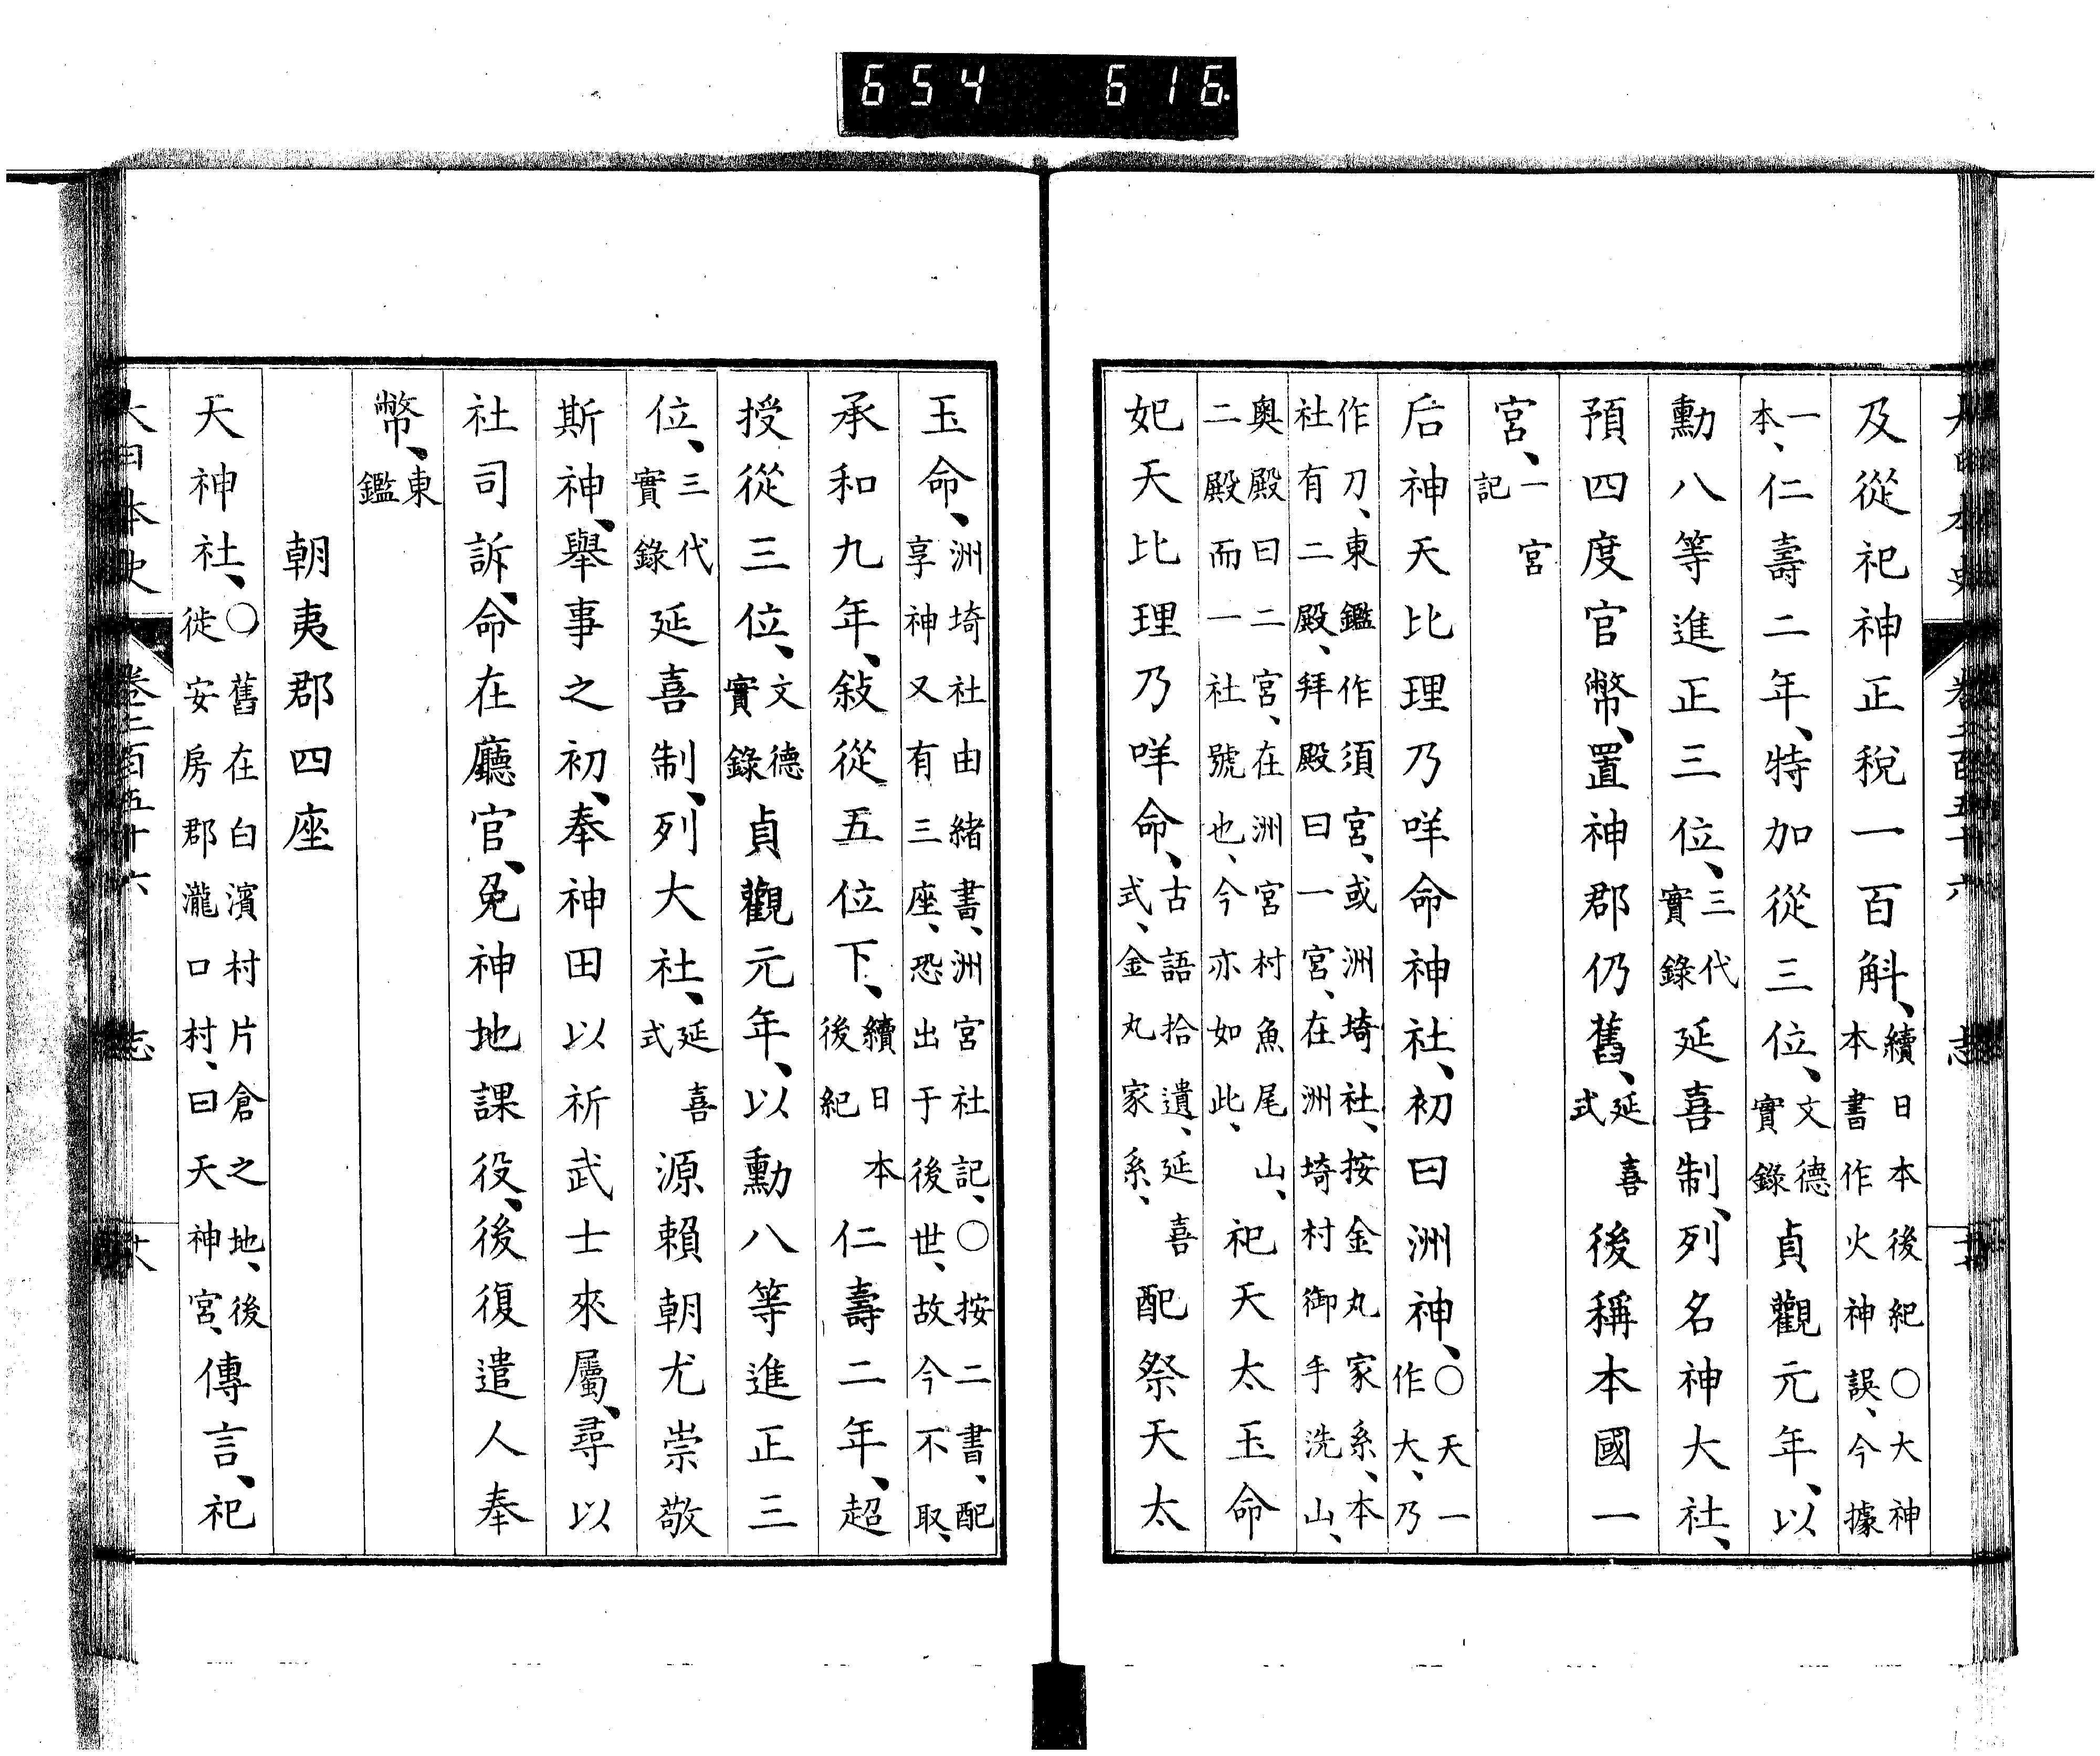 654 616
大日本史 卷二百五十六 志
及從祀神正稅一百斛、續日本後紀○大神本書作火神誤、今據
一本、仁壽二年、特加從三位、文德實錄貞觀元年、以
勳八等進正三位、三代實錄延喜制、列名神大社、
預四度官幣、置神郡仍舊、延喜式後稱本國一
宮、一宮記
后神天比理乃咩命神社、初曰洲神、○天一作大、乃
作刀、東鑑作須宮、或洲埼社、按金丸家系、本社有二殿、拜殿曰一宮、在洲埼村御手洗山、
奧殿曰二宮、在洲宮村魚尾山、二殿而一社號也、今亦如此、祀天太玉命
妃天比理乃咩命、古語拾遺、延喜式、金丸家系、配祭天太
玉命、洲埼社由緒書、洲宮社記、○按二書、配享神又有三座、恐出于後世、故今不取、
承和九年、敍從五位下、續日本後紀仁壽二年、超
授從三位、文德實錄貞觀元年、以勳八等進正三
位、三代實錄延喜制、列大社、延喜式源賴朝尤崇敬
斯神、舉事之初、奉神田以祈武士來屬、尋以
社司訴、命在廳官、免神地課役、後復遣人奉
幣、東鑑
朝夷郡四座
天神社、○舊在白濱村片倉之地、後徙安房郡瀧口村、曰天神宮、傳言、祀
大日本史 卷二百五十六 志